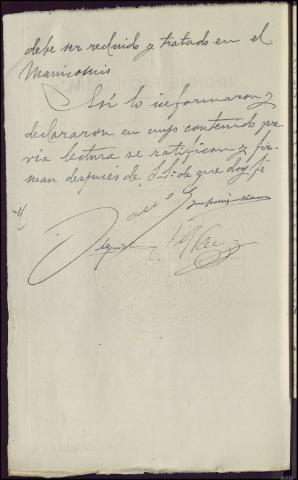 debe ser recluido y tratado en el
Manicomio
Así lo informaron y
declararon en cuyo contenido pre
via lectura se ratifican y fir
man después de S Sª de que doy fé